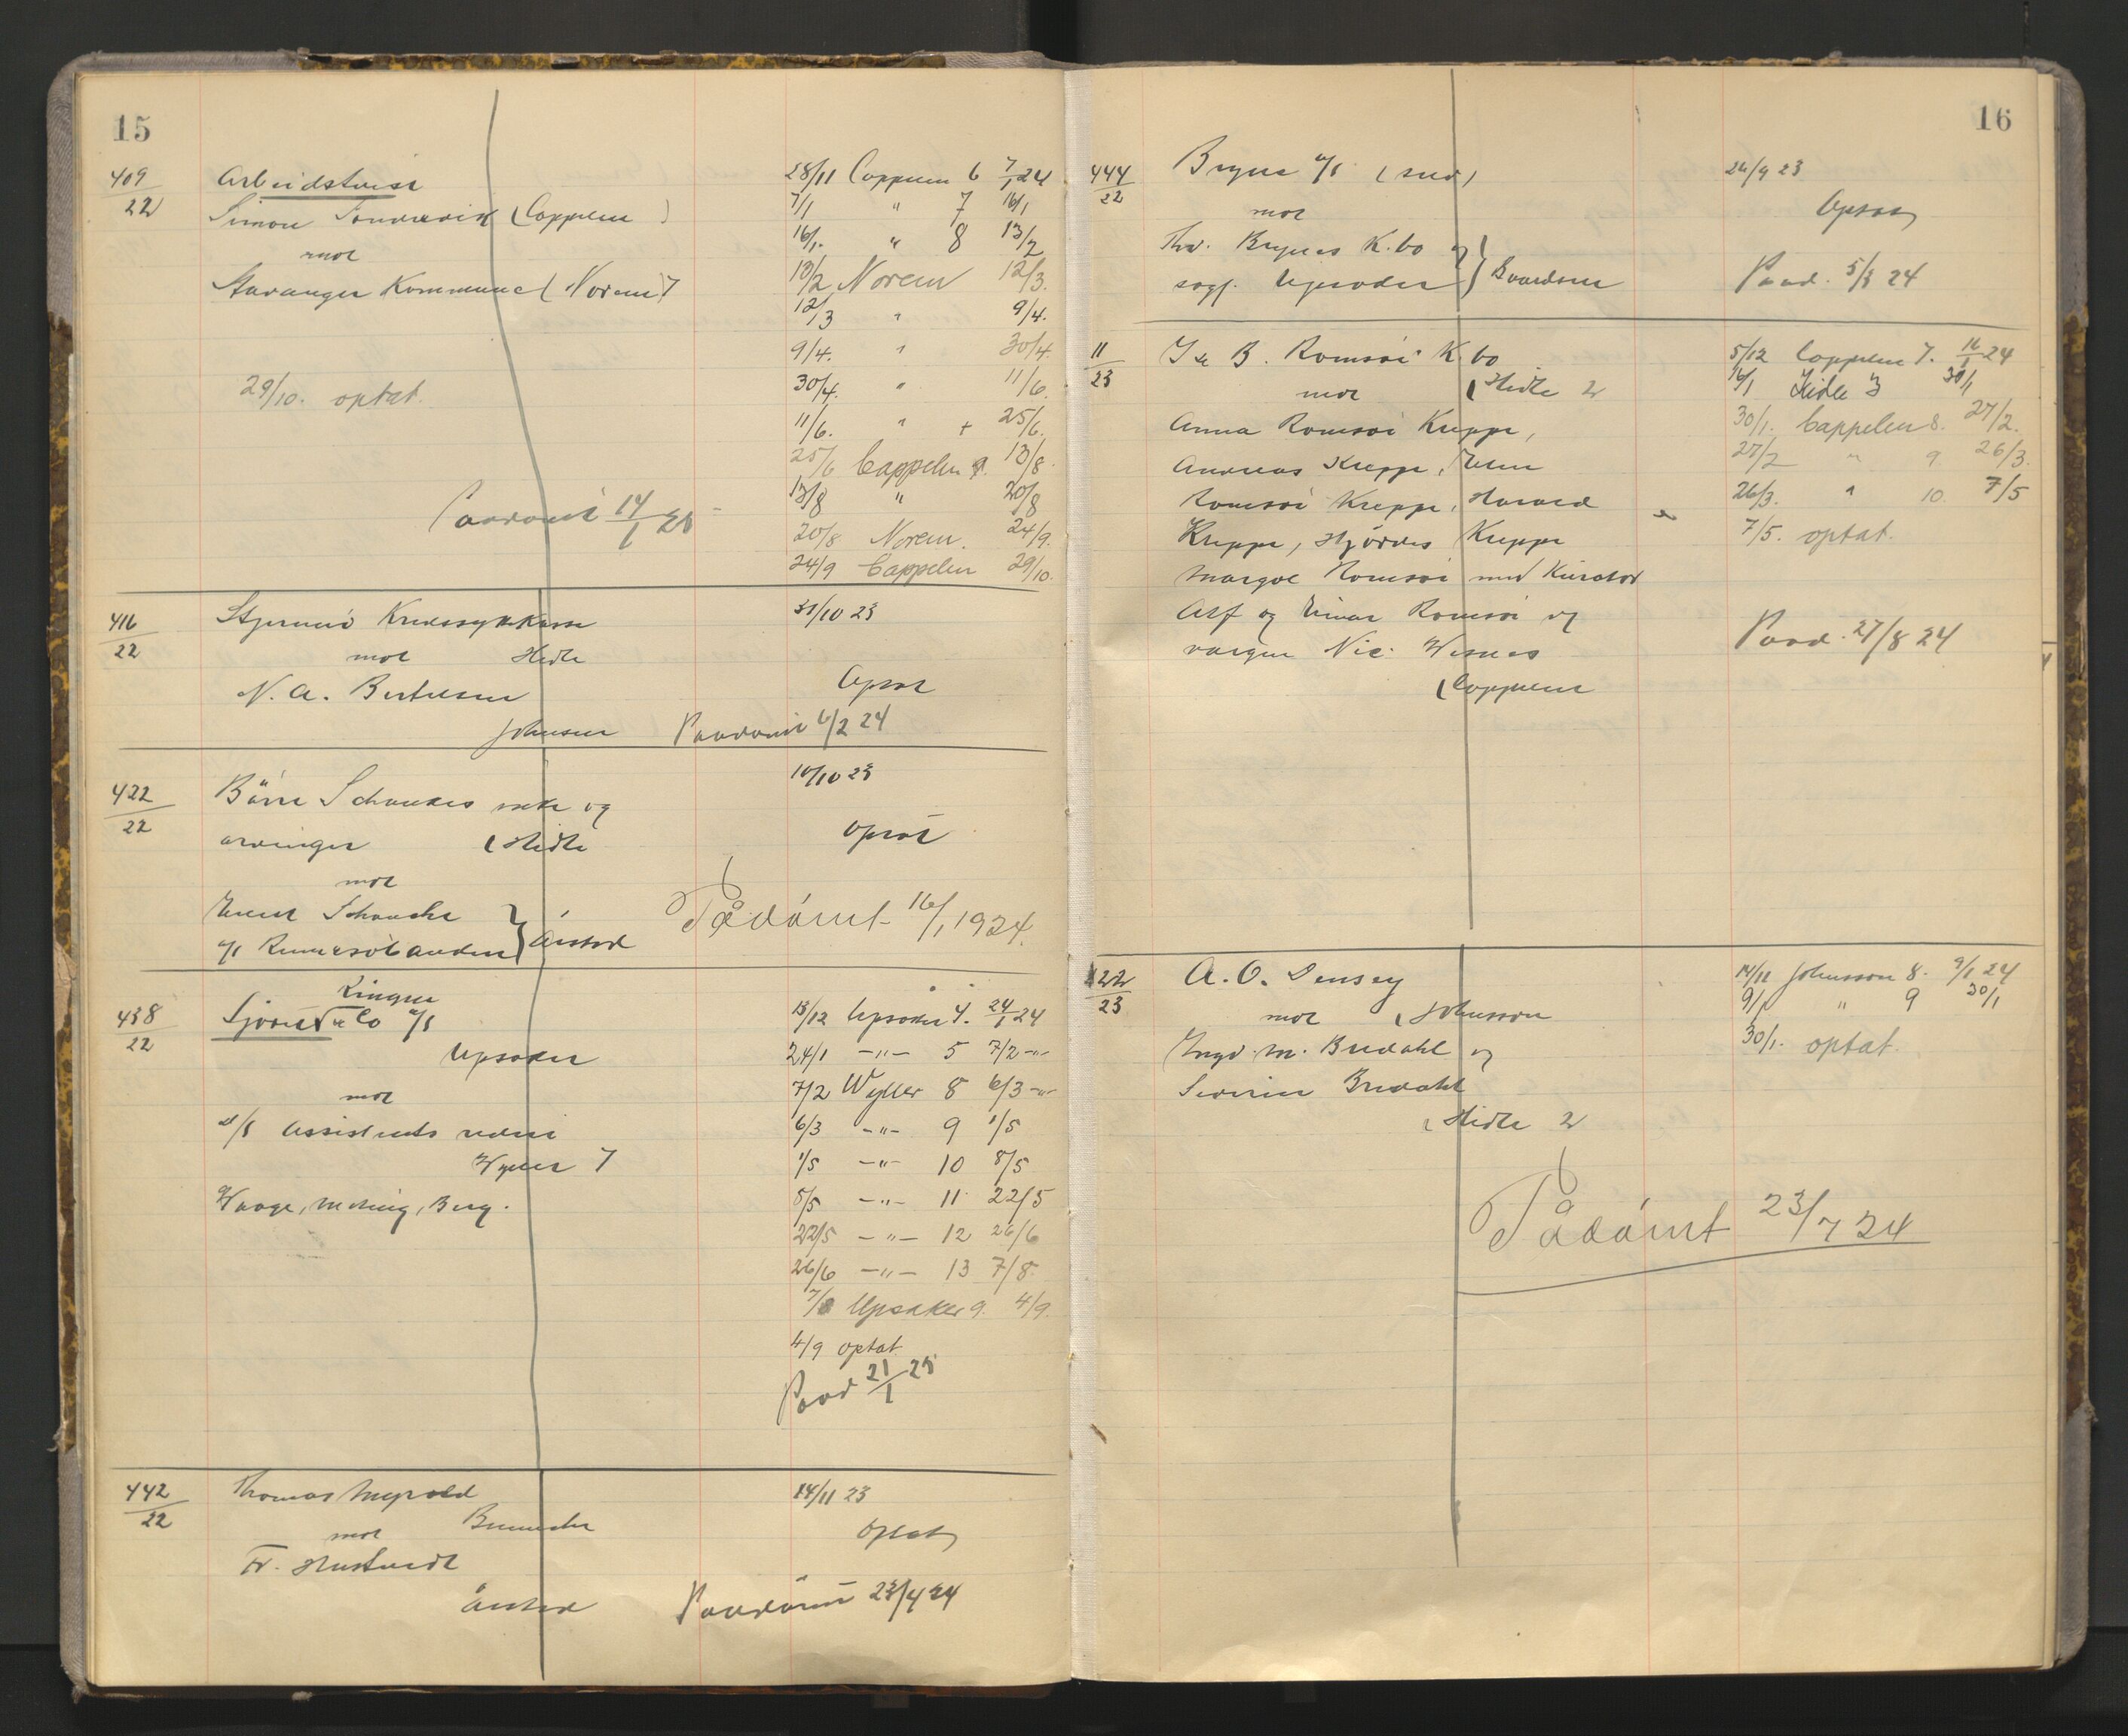 15
409/22 Arbeidstvist 28/11 Cappelen 6 7/1 24
Simon (Cappelen) 7/1 " 7 16/1
mot 16/1. " 8 13/2
Stavanger Kommune (Norem) 7 13/2 Norem 12/3.
12/3 " 9/4.
9/4. " 30/4.
29/10. optat. 30/4. " 11/6.
11/6. " + 25/6.
25/6 Cappelen 9. 13/8.
Paadømt 14/1 25 13/8 " 20/8
20/8 Norem. 24/9.
24/9 Cappelen 29/10.
416/22 Kredssykekasse 31/10 23
mot Hidle
N. A. Bertelsen Optat
Johnsen Paadømt 6/2 24
422/22 10/10 23
Børre Schankes enke og
arvinger (Hidle optat
mot
Schanche
a/s } Aarstad Pådømt 16/1 1924.
438/22 Ringen
& Co a/s 13/12 Opsaker 4. 24/1 24
Opsaker 24/1 -"- 5 7/2 -"-
mot 7/2 Wyller 8 6/3 -"-
a/s Assistents rederi 6/3 -"- 9 1/5
Wyller 7 1/5 -"- 10 8/5
Waage, Meling, Berg. 8/5 -"- 11 22/5
22/5 -"- 12 26/6
26/6 -"- 13 7/8
7/8 Opsaker 9. 4/9.
4/9 optat
Paad 21/1 25
442/22 Thomas 14/11 23
mot
Fr. Hustvedt optat
Aarstad Paadømt 23/4 24
16
444/22 Bryne a/s 26/9 23
mot Optat
Thv. Brynes K.bo og
sagf. Opsaker } Paad. 5/3 24
11/23 I & B. Romsøi K.bo 5/12 Cappelen 7. 16/1 24
mot (Hidle 2 16/1 Hidle 3 30/1
Anna Romsøi Kreppe, 30/1. Cappelen 8. 27/2.
Andreas Kreppe, 27/2 " 9. 26/3.
Romsøi Kreppe, Harald 26/3. " 10. 7/5
Kreppe, Hjørdis Kreppe 7/5. optat.
Margot Romsøi med Kurator
Alf og Einar Romsøi og
vergen Nic. Paad. 27/8 24
(Cappelen
122/23 A. O. 14/11 Johnsson 8. 9/1 24
mot (Johnsson 9/1 " 9 30/1
Ingv. M. Bredahl og 30/1. optat.
Severin Bredahl
(Hidle 2
Pådømt 23/7 24